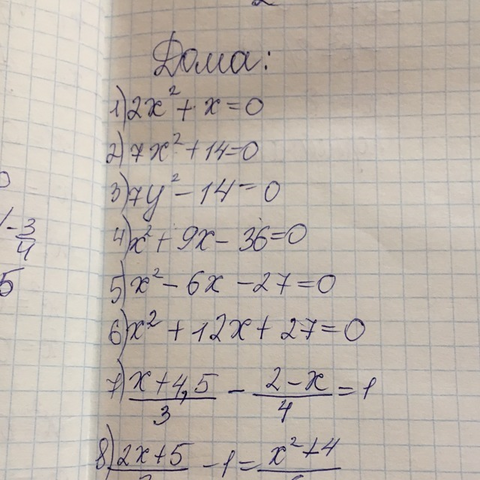 Дома:
1) 2x² + x = 0
2) 7x² + 14 = 0
3) 7y² - 14 = 0
4) x² + 9x - 36 = 0
5) x² - 6x - 27 = 0
6) x² + 12x + 27 = 0
7) (x + 4,5)/3 - (2 - x)/4 = 1
8) 2x + 5 - 1 = x² + 4
- 3/4
5